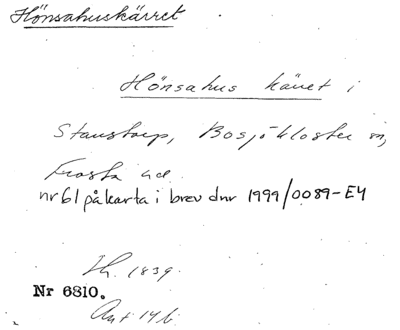 Hönsahuskärret
Hönsahus käret i
Stanstorp, Bosjökloster sn,
Frosta hd.
nr 61 på karta i brev dnr 1999/0089-E4
Th. 1839.
Nr 6810.
Ant. 14 b.